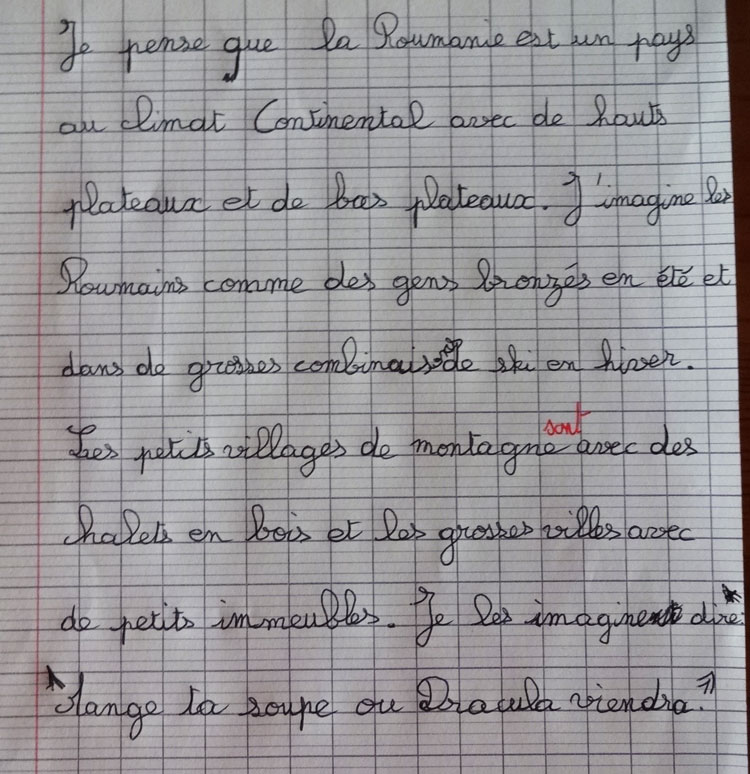 Je pense que la Roumanie est un pays
au climat Continental avec de hauts
plateaux et de bas plateaux. J'imagine les
Roumains comme des gens bronzés en été et
dans de grosses combinais de ski en hiver.
sont
Les petits villages de montagne avec des
chalets en bois et les grosses villes avec
de petits immeubles. Je les imagine dire:
"Mange ta soupe ou Dracula viendra."